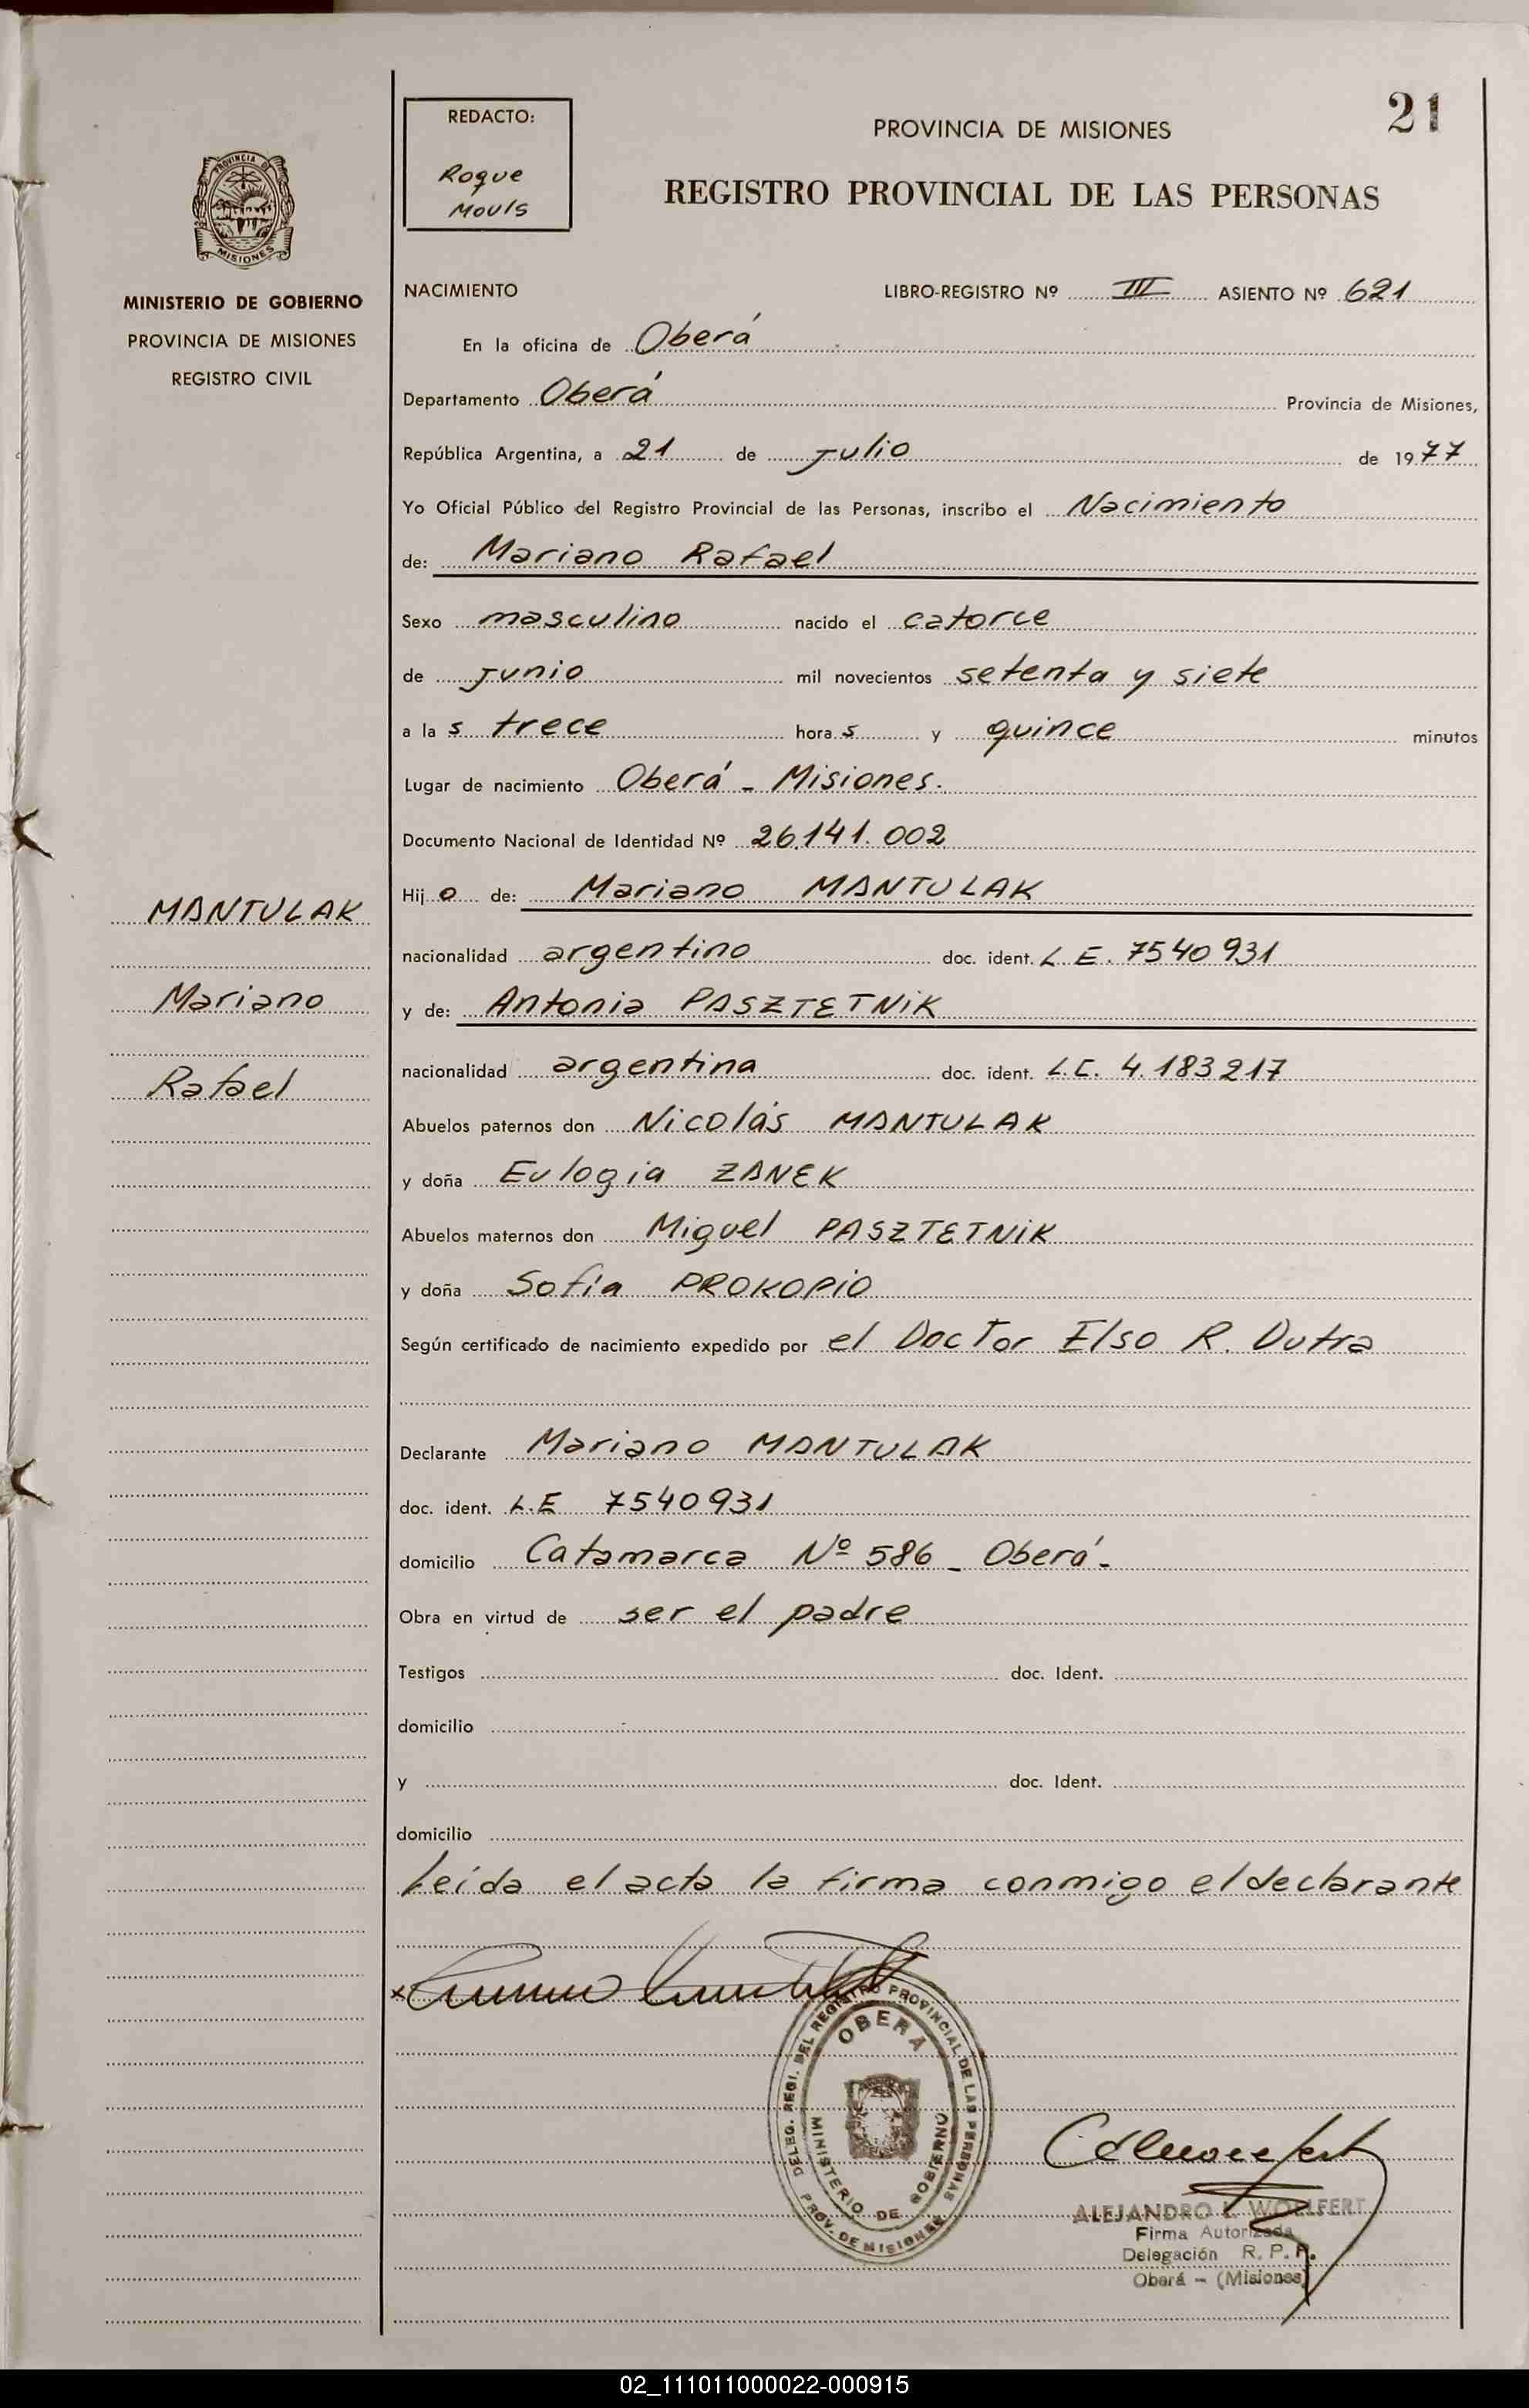 21
REDACTO:
Roque
Mouls
PROVINCIA DE MISIONES
REGISTRO PROVINCIAL DE LAS PERSONAS
PROVINCIA DE
MISIONES
MINISTERIO DE GOBIERNO
PROVINCIA DE MISIONES
REGISTRO CIVIL
NACIMIENTO LIBRO-REGISTRO Nº III ASIENTO Nº 621
En la oficina de Oberá
Departamento Oberá Provincia de Misiones,
República Argentina, a 21 de Julio de 1977
Yo Oficial Público del Registro Provincial de las Personas, inscribo el Nacimiento
de: Mariano Rafael
Sexo masculino nacido el catorce
de Junio mil novecientos setenta y siete
a la s trece hora s y quince minutos
Lugar de nacimiento Oberá - Misiones.
Documento Nacional de Identidad Nº 26.141.002
Hij o de: Mariano MANTULAK
nacionalidad argentino doc. ident. L.E. 7540931
y de: Antonia PASZTETNiK
nacionalidad argentina doc. ident. L.C. 4.183217
Abuelos paternos don Nicolás MANTULAK
y doña Eulogia ZANEK
Abuelos maternos don Miguel PASZTETNiK
y doña Sofía PROKOPiO
Según certificado de nacimiento expedido por el Doctor Elso R. Dutra
Declarante Mariano MANTULAK
doc. ident. L.E 7540931
domicilio Catamarca Nº 586 - Oberá -
Obra en virtud de ser el padre
Testigos doc. Ident.
domicilio
y doc. Ident.
domicilio
Leída el acta la firma conmigo el declarante
MANTULAK
Mariano
Rafael
DELEG. REGI. DEL REGISTRO PROVINCIAL DE LAS PERSONAS
OBERA
MINISTERIO DE GOBIERNO
PROV. DE MISIONES
ALEJANDRO L. WOLLFERT
Firma Autorizada
Delegación R. P. P.
Oberá - (Misiones)
02_111011000022-000915